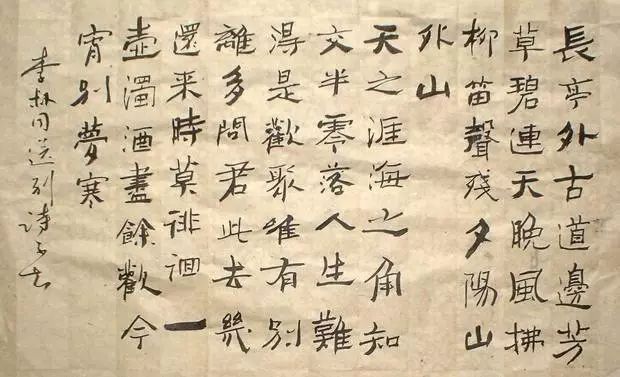 長亭外古道邊芳
草碧連天晚風拂
柳笛聲殘夕陽山
外山
天之涯海之角知
交半零落人生難
得是歡聚唯有別
離多問君此去幾
還来時莫徘徊一
壺濁酒盡餘歡今
宵别夢寒
李叔同送别詩